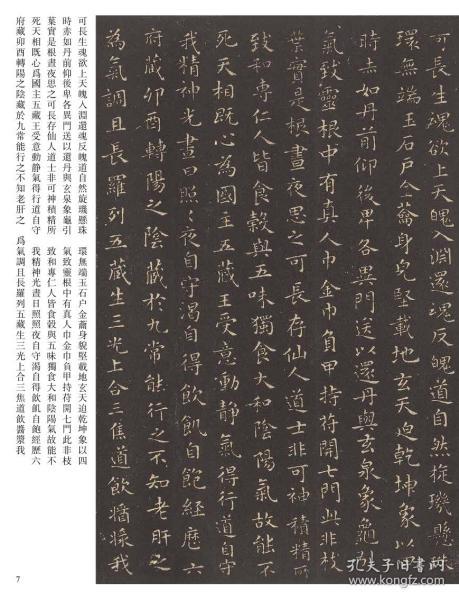 可長生魂欲上天魄入淵還魂反魄道自然旋璣懸珠
環無端玉石戶金蘥身皃堅載地玄天迫乾坤象以四
時赤如丹前仰後卑各異門送以還丹與玄泉象龜引
氣致靈根中有真人巾金巾負甲持苻開七門此非枝
葉實是根晝夜思之可長存仙人道士非可神積精所
致和專仁人皆食穀與五味獨食大和陰陽氣故能不
死天相既心為國主五藏王受意動靜氣得行道自守
我精神光晝日照照夜自守渴自得飲飢自飽經歷六
府藏卯酉轉陽之陰藏於九常能行之不知老肝之
為氣調且長羅列五藏生三光上合三焦道飲醬漿我
可長生魂欲上天魄入淵還魂反魄道自然旋璣懸珠 環無端玉石戶金蘥身貌堅載地玄天迫乾坤象以四
時赤如丹前仰後卑各異門送以還丹與玄泉象龜引 氣致靈根中有真人巾金巾負甲持苻開七門此非枝
葉實是根晝夜思之可長存仙人道士非可神積精所 致和專仁人皆食穀與五味獨食大和陰陽氣故能不
死天相既心爲國主五藏王受意動靜氣得行道自守 我精神光晝日照照夜自守渴自得飲飢自飽經歷六
府藏卯酉轉陽之陰藏於九常能行之不知老肝之 爲氣調且長羅列五藏生三光上合三焦道飲醬漿我
7
孔夫子旧书网
www.kongfz.com